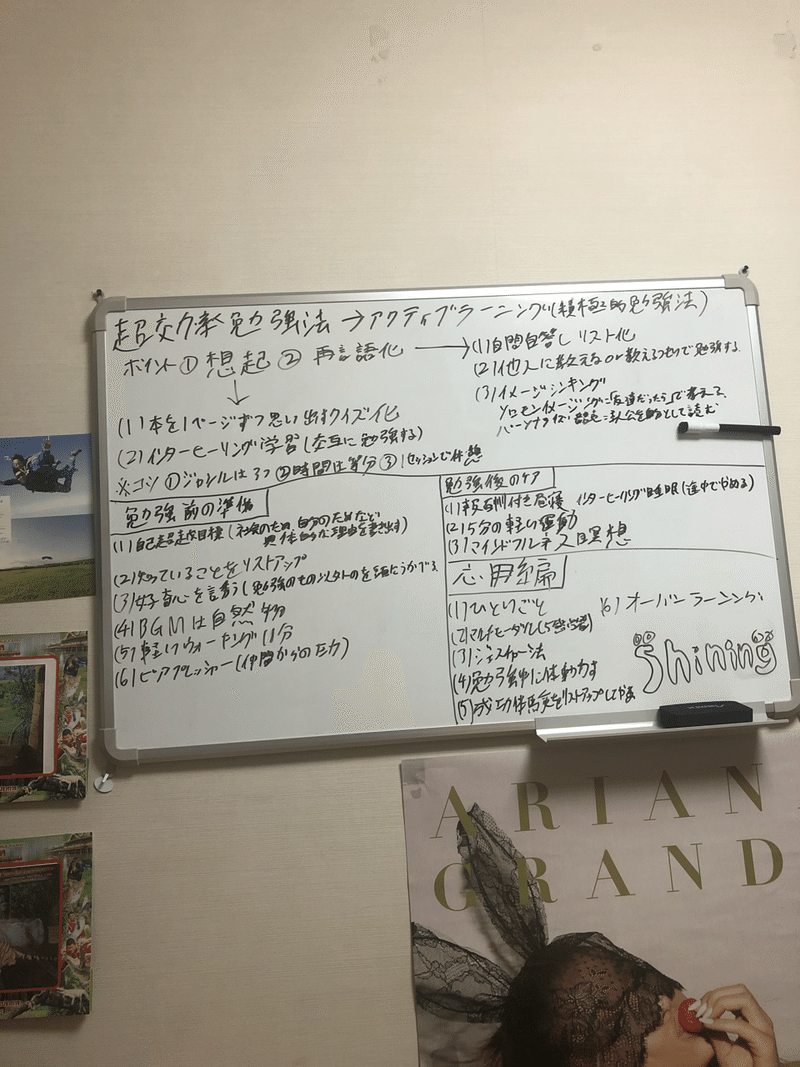 超効率勉強法→アクティブラーニング(積極的勉強法)
ポイント① 想起 ② 再言語化
→(1)自問自答しリスト化
(2)他人に教えるor教えるつもりで勉強する.
(3)イメージシンキング
ソロモンイメージング=「友達だったら」で考える、
↓
(1)本を1ページずつ思い出すクイズ化
(2)インターヒーリング学習(交互に勉強する)
※コツ ①ジャンルは3つ ②時間は等分 ③1セッションで休憩
勉強前の準備
(1)自己超越目標(社会のため,自分のためなど
具体的な理由を書き出す)
(2)知っていることをリストアップ
(3)好奇心を誘う(勉強のもの以外の
(4)BGMは自然物
(5)軽いウォーキング11分
(6)ピアプレッシャー(仲間からの圧力)
勉強後のケア
(1)報酬付き昼寝 インターヒーリング睡眠(途中でやめる)
(2)15分の軽い運動
(3)マインドフルネス瞑想
応用編
(1)ひとりごと
(2)マルチモーダル(5感学習)
(3)ジェスチャー法
(4)勉強中に体動かす
(5)成功体験をリストアップしてやる
(6)オーバーラーニング
Shining
ARIAN
GRAND